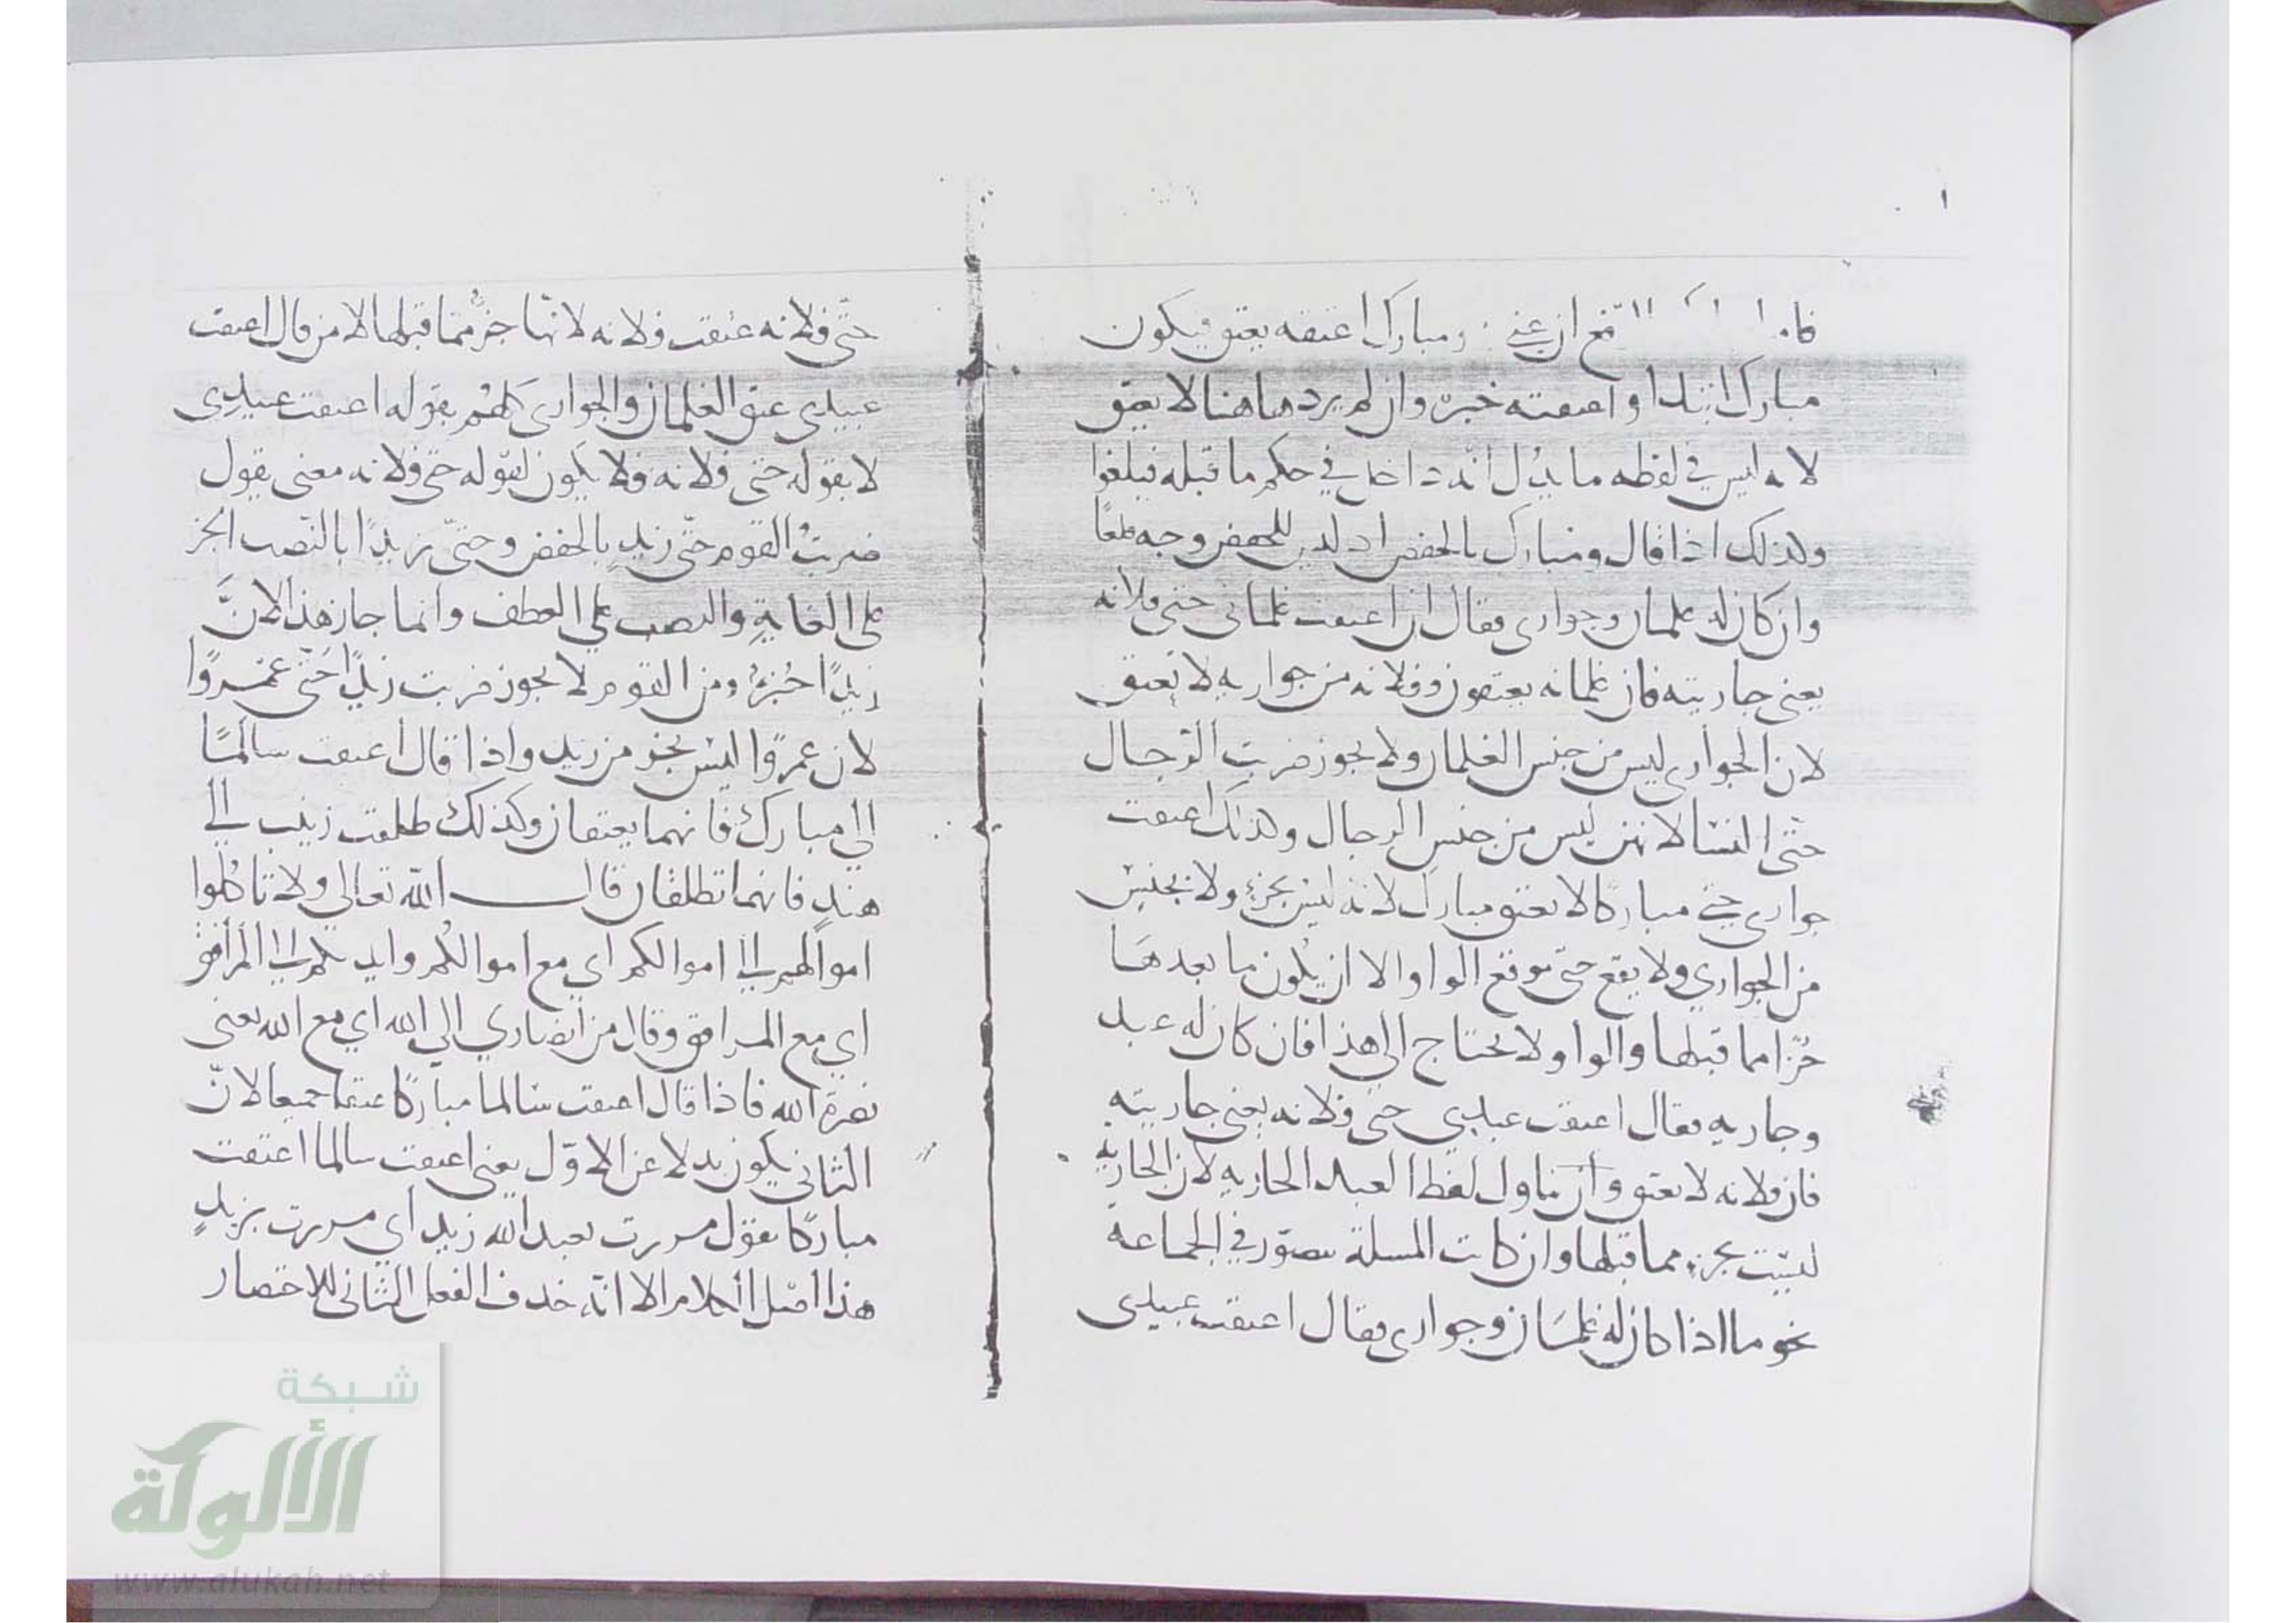 ومبارك اعتقه يعتق فيكون
مبارك ابتدا واعتقته خبره وان لم يرد هاهنا لا يعتق
لانه ليس في لفظه ما يدل انه داخل في حكم ما قبله فيلغوا
وكذلك اذا قال ومبارك بالخفض اذ ليس للخفض وجه
وان كان له غلمان وجوارى فقال ان اعتقت غلمانى حتى فلانه
يعنى جاريته فان غلمانه يعتقون وفلانه من جواريه لا تعتق
لان الجوارى ليس من جنس الغلمان ولا يجوز ضربت الرجال
حتى النسا لانهن ليس من جنس الرجال وكذلك اعتقت
جوارى حتى مباركا لا يعتق مبارك لانه ليس بجزء ولا بجنس
من الجواري ولا يقع حتى موقع الواو الا ان يكون ما بعدها
جزا مما قبلها والواو لا يحتاج الى هذا فان كان له عبد
وجاريه فقال اعتقت عبدي حتى فلانه يعنى جاريته
فان فلانه لا تعتق وان تناول لفظ العبد الجاريه لان الجاريه
ليست بجزء مما قبلها وان كانت المسلة تتصور في الجماعة
نحو ما اذا كان له غلمان وجوارى فقال اعتقت عبيدى
حتى فلانه عتقت فلانه لانها جزء مما قبلها الا من قال اعتقت
عبيدي عتق الغلمان والجوارى كلهم بقوله اعتقت عبيدي
لا بقوله حتى فلانه فلا يكون لقوله حتى فلانه معنى يقول
ضربت القوم حتى زيد بالخفض وحتى زيدا بالنصب الجر
على الغاية والنصب على العطف وانما جاز هذا لان
زيدا جزء من القوم لا يجوز ضربت زيدا حتى عمروا
لان عمروا ليس بجزء من زيد واذا قال اعتقت سالما
الى مبارك فانهما يعتقان وكذلك طلقت زينب الي
هند فانهما تطلقان قال الله تعالى ولا تاكلوا
اموالهم الى اموالكم اي مع اموالكم وايديكم الى المرافق
اي مع المرافق وقال من انصاري الى الله اي مع الله يعنى
نصرة الله فاذا قال اعتقت سالما مباركا عتقا جميعا لان
الثانى يكون بدلا عن الاول يعنى اعتقت سالما اعتقت
مباركا تقول مررت بعبد الله زيد أي مررت بزيد
هذا اصل الكلام الا انه حذف الفعل الثانى للاختصار
شبكة
الألوكة
www.alukah.net